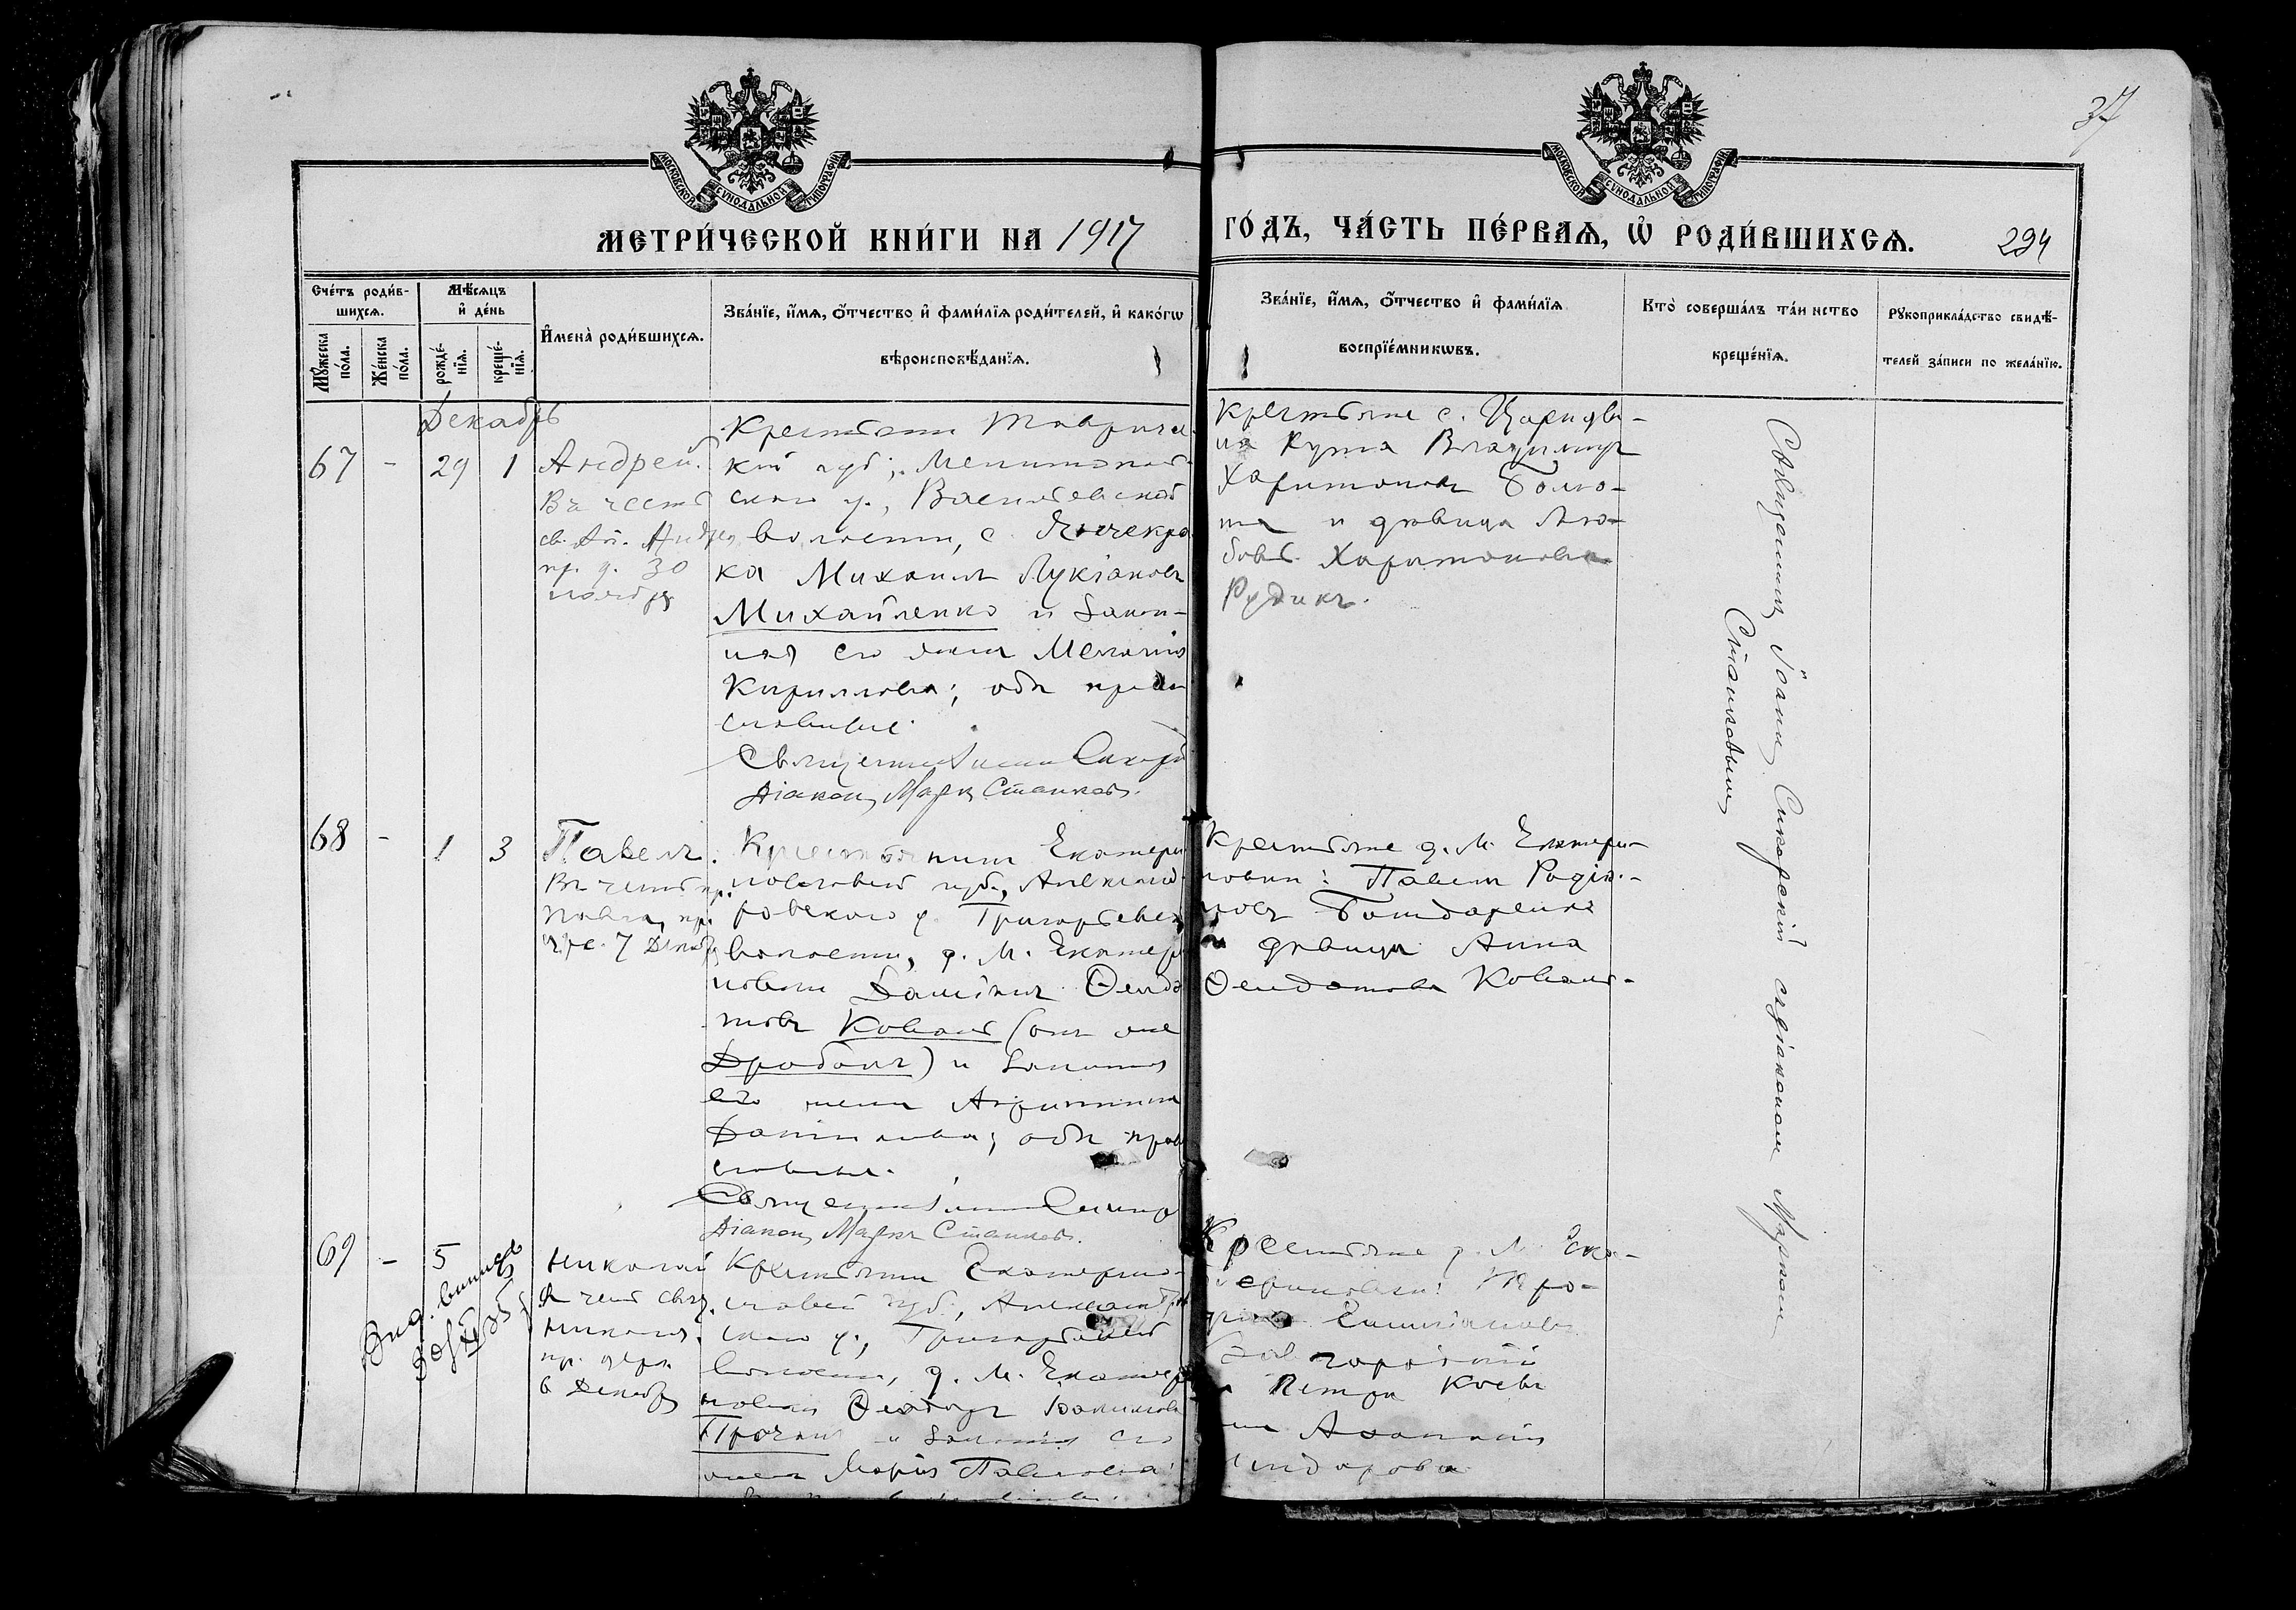 37
МОСКОВСКОЙ СѴНОДАЛЬНОЙ ТИПОГРАФІИ
МОСКОВСКОЙ СѴНОДАЛЬНОЙ ТИПОГРАФІИ
МЕТРИ́ЧЕСКОЙ КНИ́ГИ НА 1917
ГО́ДЪ, ЧА́СТЬ ПЕ́РВАѦ, Ѡ҆ РОДИ́ВШИХСѦ.
294
Сче́тъ роди́в-
шихсѧ.
Мꙋ́жеска
по́ла.
Же́нска
по́ла.
Мѣ́сѧцъ
и҆ де́нь
рожде́-
нїѧ.
креще́-
нїѧ.
И҆мена̀ роди́вшихсѧ.
Зва́нїе, и҆́мѧ, ѻ҆́тчество и҆ фами́лїѧ роди́телей, и҆ како́гѡ
вѣроисповѣ́данїѧ.
Зва́нїе, и҆́мѧ, ѻ҆́тчество и҆ фами́лїѧ
воспрїе́мникѡвъ.
Кто̀ соверша́лъ та́инство
креще́нїѧ.
Рꙋкоприкла́дство свидѣ́-
телей за́писи по жела́нїю.
Декабрь
67 - 29 1
Андрей.
Въ честь
св. Ап. Андрея
пр. д. 30
ноября
Крестьянин Тавриче
кой губ., Мелитополь-
скаго у., Васильевской
волости, с. Янчекра
ка Михаилъ Лукіановъ
Михайленко и закон-
ная его жена Меланія
Кириллова; оба право
славные.
Діаконъ Маркъ Станков.
Крестьяне с.
Кута Владиміръ
Харитоновъ Болю-
та и дѣвица Лю-
бовь Харитонова
Рудикъ.
Священникъ Іоаннъ Сикорскій съ діакономъ Маркомъ
68 - 1 3
Павелъ.
Въ честь пр.
Павла, пр.
7 Декабр
Крестьянинъ Екатери
нославской губ., Александ-
ровскаго у. Григорьевск
волости, д. М. Екатер
новки Даміанъ Ѳеодо
товъ Коваль (онъ же
Дробот) и законная
его жена Агриппина
Данилова; оба право
славные.
Діаконъ Маркъ Станков.
Крестьяне д. М. Екатери-
новки: Павелъ Родіо-
новъ Бондаренко
и дѣвица Анна
Ѳеодотова Коваль.
69 - 5
Вид. выпись
Николай
в честь свят.
Никол.
пр. церк.
6 Декабр
Крестьянинъ Екатерино-
славской губ., Александров
скаго у., Григорьевской
волости, д. М. Екатер
новки Ѳеодоръ
и законная его
жена Марія Павлова
Крестьяне д. М. Ека-
териновки: Тро-
Емиліановъ
и Петра